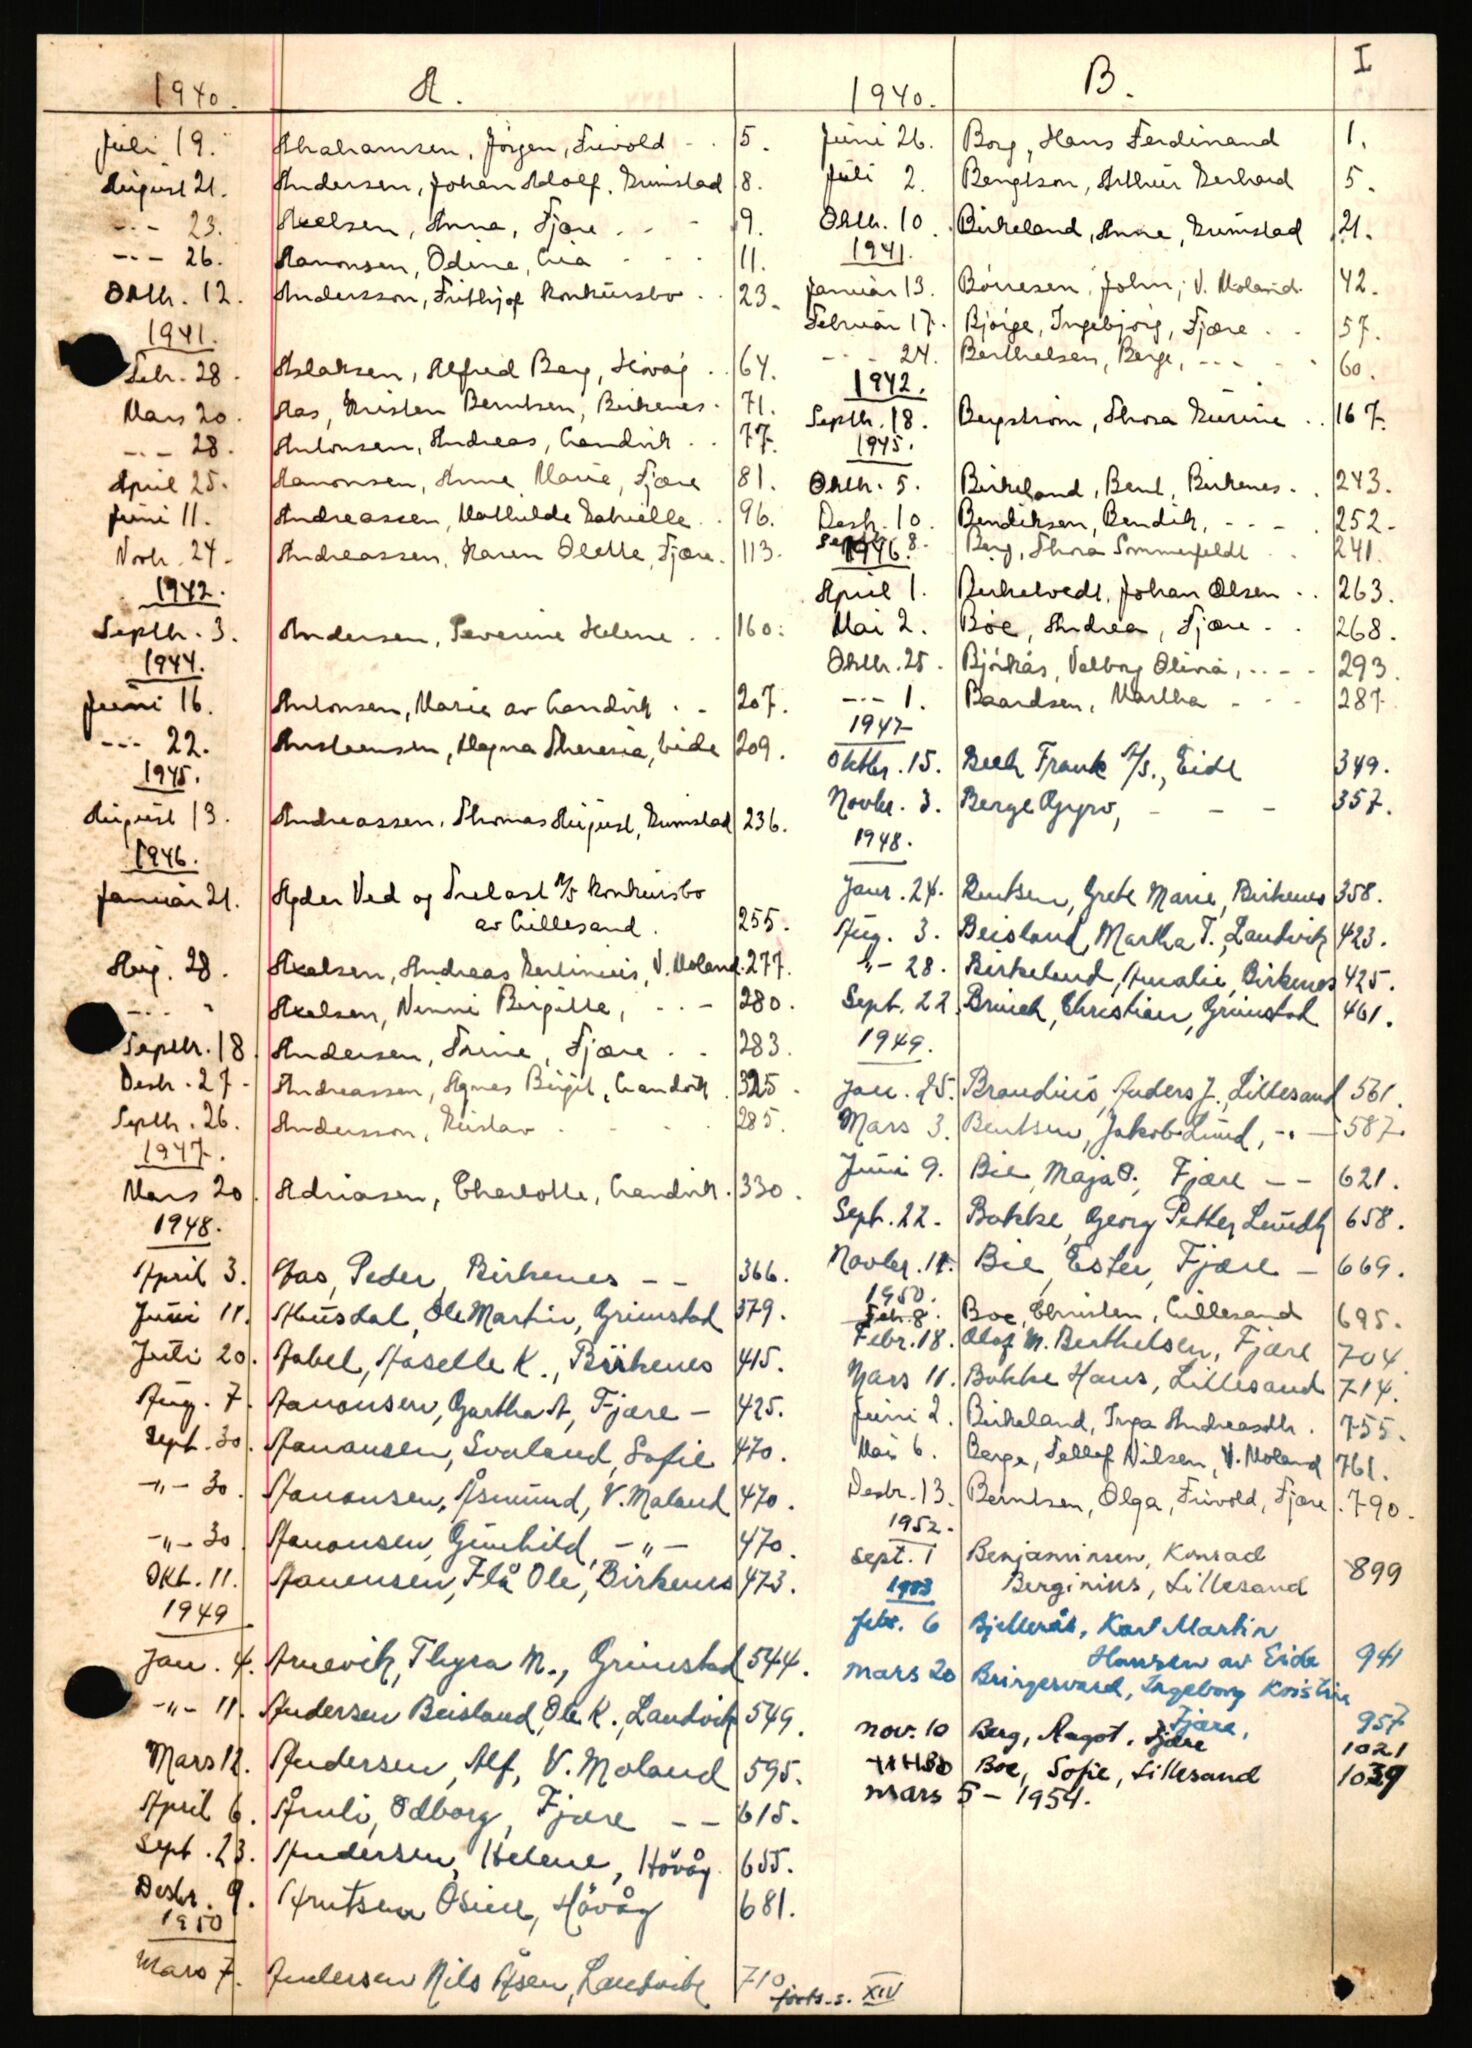 I
1940. A.
Juli 19. Abrahamsen, Jörgen, Frivold - . 5.
August 21. Andersen, Johan Adolf, Grimstad 8.
-·- 23. Axelsen, Anna, Fjære . . - 9.
-·- 26. Aanonsen, Odine, Lia - . . 11.
Oktb. 12. Andersson, Frithjof konkursbo . . 23.
1941.
Febr. 28. Aslaksen, Alfred Berg, Hövåg . . 64.
Mars 20. Aas, Kristen Berntsen, Birkenes. 71.
-·- 28. Antonsen, Andreas, Landvik . . 77.
April 25. Aanonsen, Anne Marie, Fjære 81.
Juni 11. Andreassen, Mathilde Gabrielle . . 96.
Novb. 24. Andreassen, Karen Olette, Fjære. 113.
1942.
Septb. 3. Andersen, Severine Helene . . 160.
1944.
Juni 16. Antonsen, Marie av Landvik . . 207.
-·- 22. Magna Theresia, Eide 209.
1945.
August 13. Andreassen, Thomas August, Grimstad 236.
1946.
Januar 21. Agder Ved og Trelast A/S konkursbo
av Lillesand. 255.
Aug. 28. Axelsen, Andreas V. Moland. 277.
-·- " Axelsen, Ninni Birgitte, -·- 280.
Septbr. 18 Andersen, Trine, Fjære . . 283.
Desb. 27. Andreassen, Agnes Birgit, Landvik. 325.
Septb. 26. Andersson, Gustav . . . 285.
1947.
Mars 20. Adriasen, Charlotte, Landvik. 330.
1948.
April 3. Aas, Peder, Birkenes - - 366.
Juni 11. Ole Martin, Grimstad 379.
Juli 20. Aabel, Aaselle K., Birkenes 415.
Aug. 7. Aanonsen, Gartha A, Fjære - 425.
Sept. 30. Aanonsen, Svaland, Sofie 470.
-"- 30. Aanonsen, Åsmund, V. Moland 470.
-"- 30 Aanonsen, Gunhild, -"- 470.
Okt. 11. Aanensen, Flå Ole, Birkenes 473.
1949
Jan. 4. Arnevik, Thyra M., Grimstad 544.
-"- 11. Andersen Beisland, Ole K., Landvik 549.
Mars 12. Andersen, Alf, V. Moland 595.
April 6. Åmli, Odborg, Fjære - - 615.
Sept. 23. Andersen, Helene, Hövåg. 655.
Desbr. 9. Osine, Hövåg 681.
1950
Mars 7. Andersen Nils Åsen, Landvik 710
forts. s. XIV
1940. B.
Juni 26. Borg, Hans Ferdinand 1.
Juli 2. Bengtson, Arthur Gerhard 5.
Oktb. 10. Birkeland, Anne, Grimstad 21.
1941.
Januar 13. Börresen, John, V. Moland. 42.
Februar 17. Bjorge, Ingebjörg, Fjære . . 57.
-·- 24. Berthelsen, Berge, -·- 60.
1942.
Septb. 18. Bergström, Thora Gurine . . 167.
1945.
Oktb. 5. Birkeland, Bent, Birkenes . . 243.
Desb. 10. Bendiksen, Bendik, -·- . 252.
Septb. 8. Berg, Thora Sommerfeldt . . 241
1946.
April 1. Birketvedt, Johan Olsen . . 263.
Mai 2. Böe, Andrea, Fjære - . 268.
Oktb. 25. Björkås, Valborg Olivia, -·- 293.
-·- 1. Baardsen, Martha - - - 287.
1947
Oktbr. 15. Bech Frank A/S., Eide 349.
Novbr. 3. Berge Gyro, - - - 357.
1948.
Janr. 24. Bentsen, Grete Marie, Birkenes 358.
Aug. 3. Beisland, Martha T., Landvik 423.
"- 28. Birkeland, Amalie, Birkenes 425.
Sept. 22. Bruich, Christian, Grimstad 461.
1949.
Jan. 25. Brandius, Anders J., Lillesand 561.
Mars 3. Bentsen, Jakob Lund, -·- 587.
Juni 9. Bie, Maja O., Fjære - - 621.
Sept. 22. Bakke, Georg Petter Lundh 658.
Novbr. 11. Bie, Ester, Fjære - 669.
1950.
Feb. 8. Boe, Christen, Lillesand 695.
Febr. 18. Olaf M. Berthelsen, Fjære 704.
Mars 11. Bakke Hans, Lillesand 714.
Juni 2. Birkeland, Inga Andreasdtr. 755.
Mai 6. Berge, Tellef Nilsen, V. Moland 761.
Desbr. 13. Berntsen, Olga, Frivold, Fjære. 790.
1952.
Sept. 1 Benjaminsen, Konrad
Berginius, Lillesand 899
1953
febr. 6 Bjellerås, Karl Martin
Hansen av Eide 941
mars 20 Bringsværd, Ingeborg Kristin
Fjære, 957
nov. 10 Berg, Ragot, Fjære 1021
Boe, Sofie, Lillesand 1039
mars 5 - 1954.